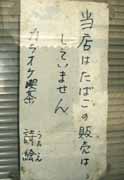 当店はたばこの販売は
していません
カラオケ喫茶
詩絵